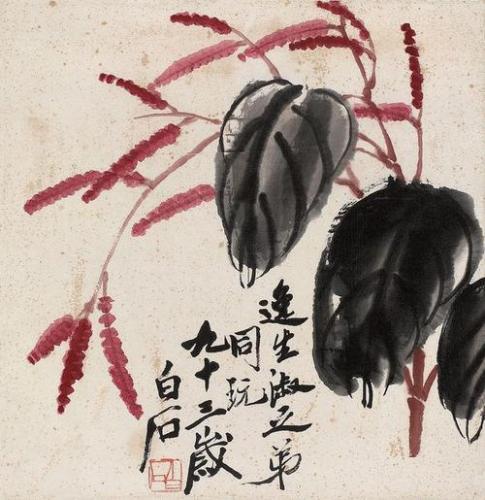 逸生淑之弟
同玩
九十三歲
白石